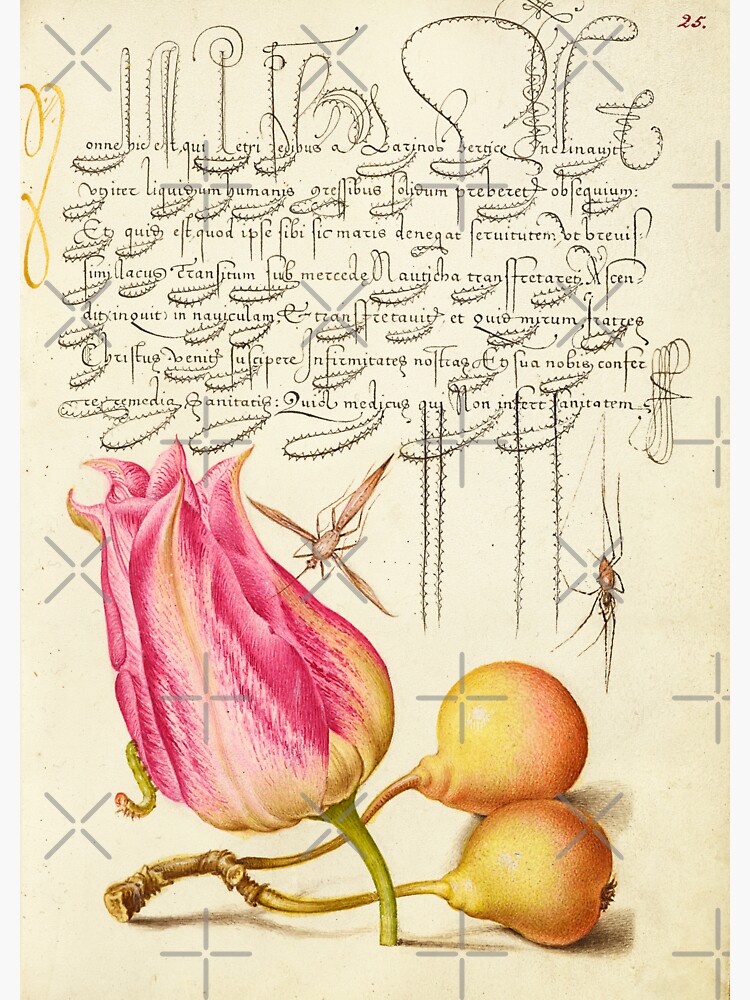 25.
onne hic est, qui Petri pedibus a Marinos vertice Inclinavit
Vtiter liquidum humanis gressibus solidum preberet obsequium:
Et quid est, quod ipse sibi sic maris denegat servitutem, vt brevis-
simi lacus Transitum sub mercede Nauticha transfretaret, Ascen-
dit (inquit) in naviculam, & transfretavit, et Quid mirum, fratres
Christus venit suscipere Infirmitates nostras, Et sua nobis confer
re remedia Sanitatis: Quid medicus qui Non infert sanitatem